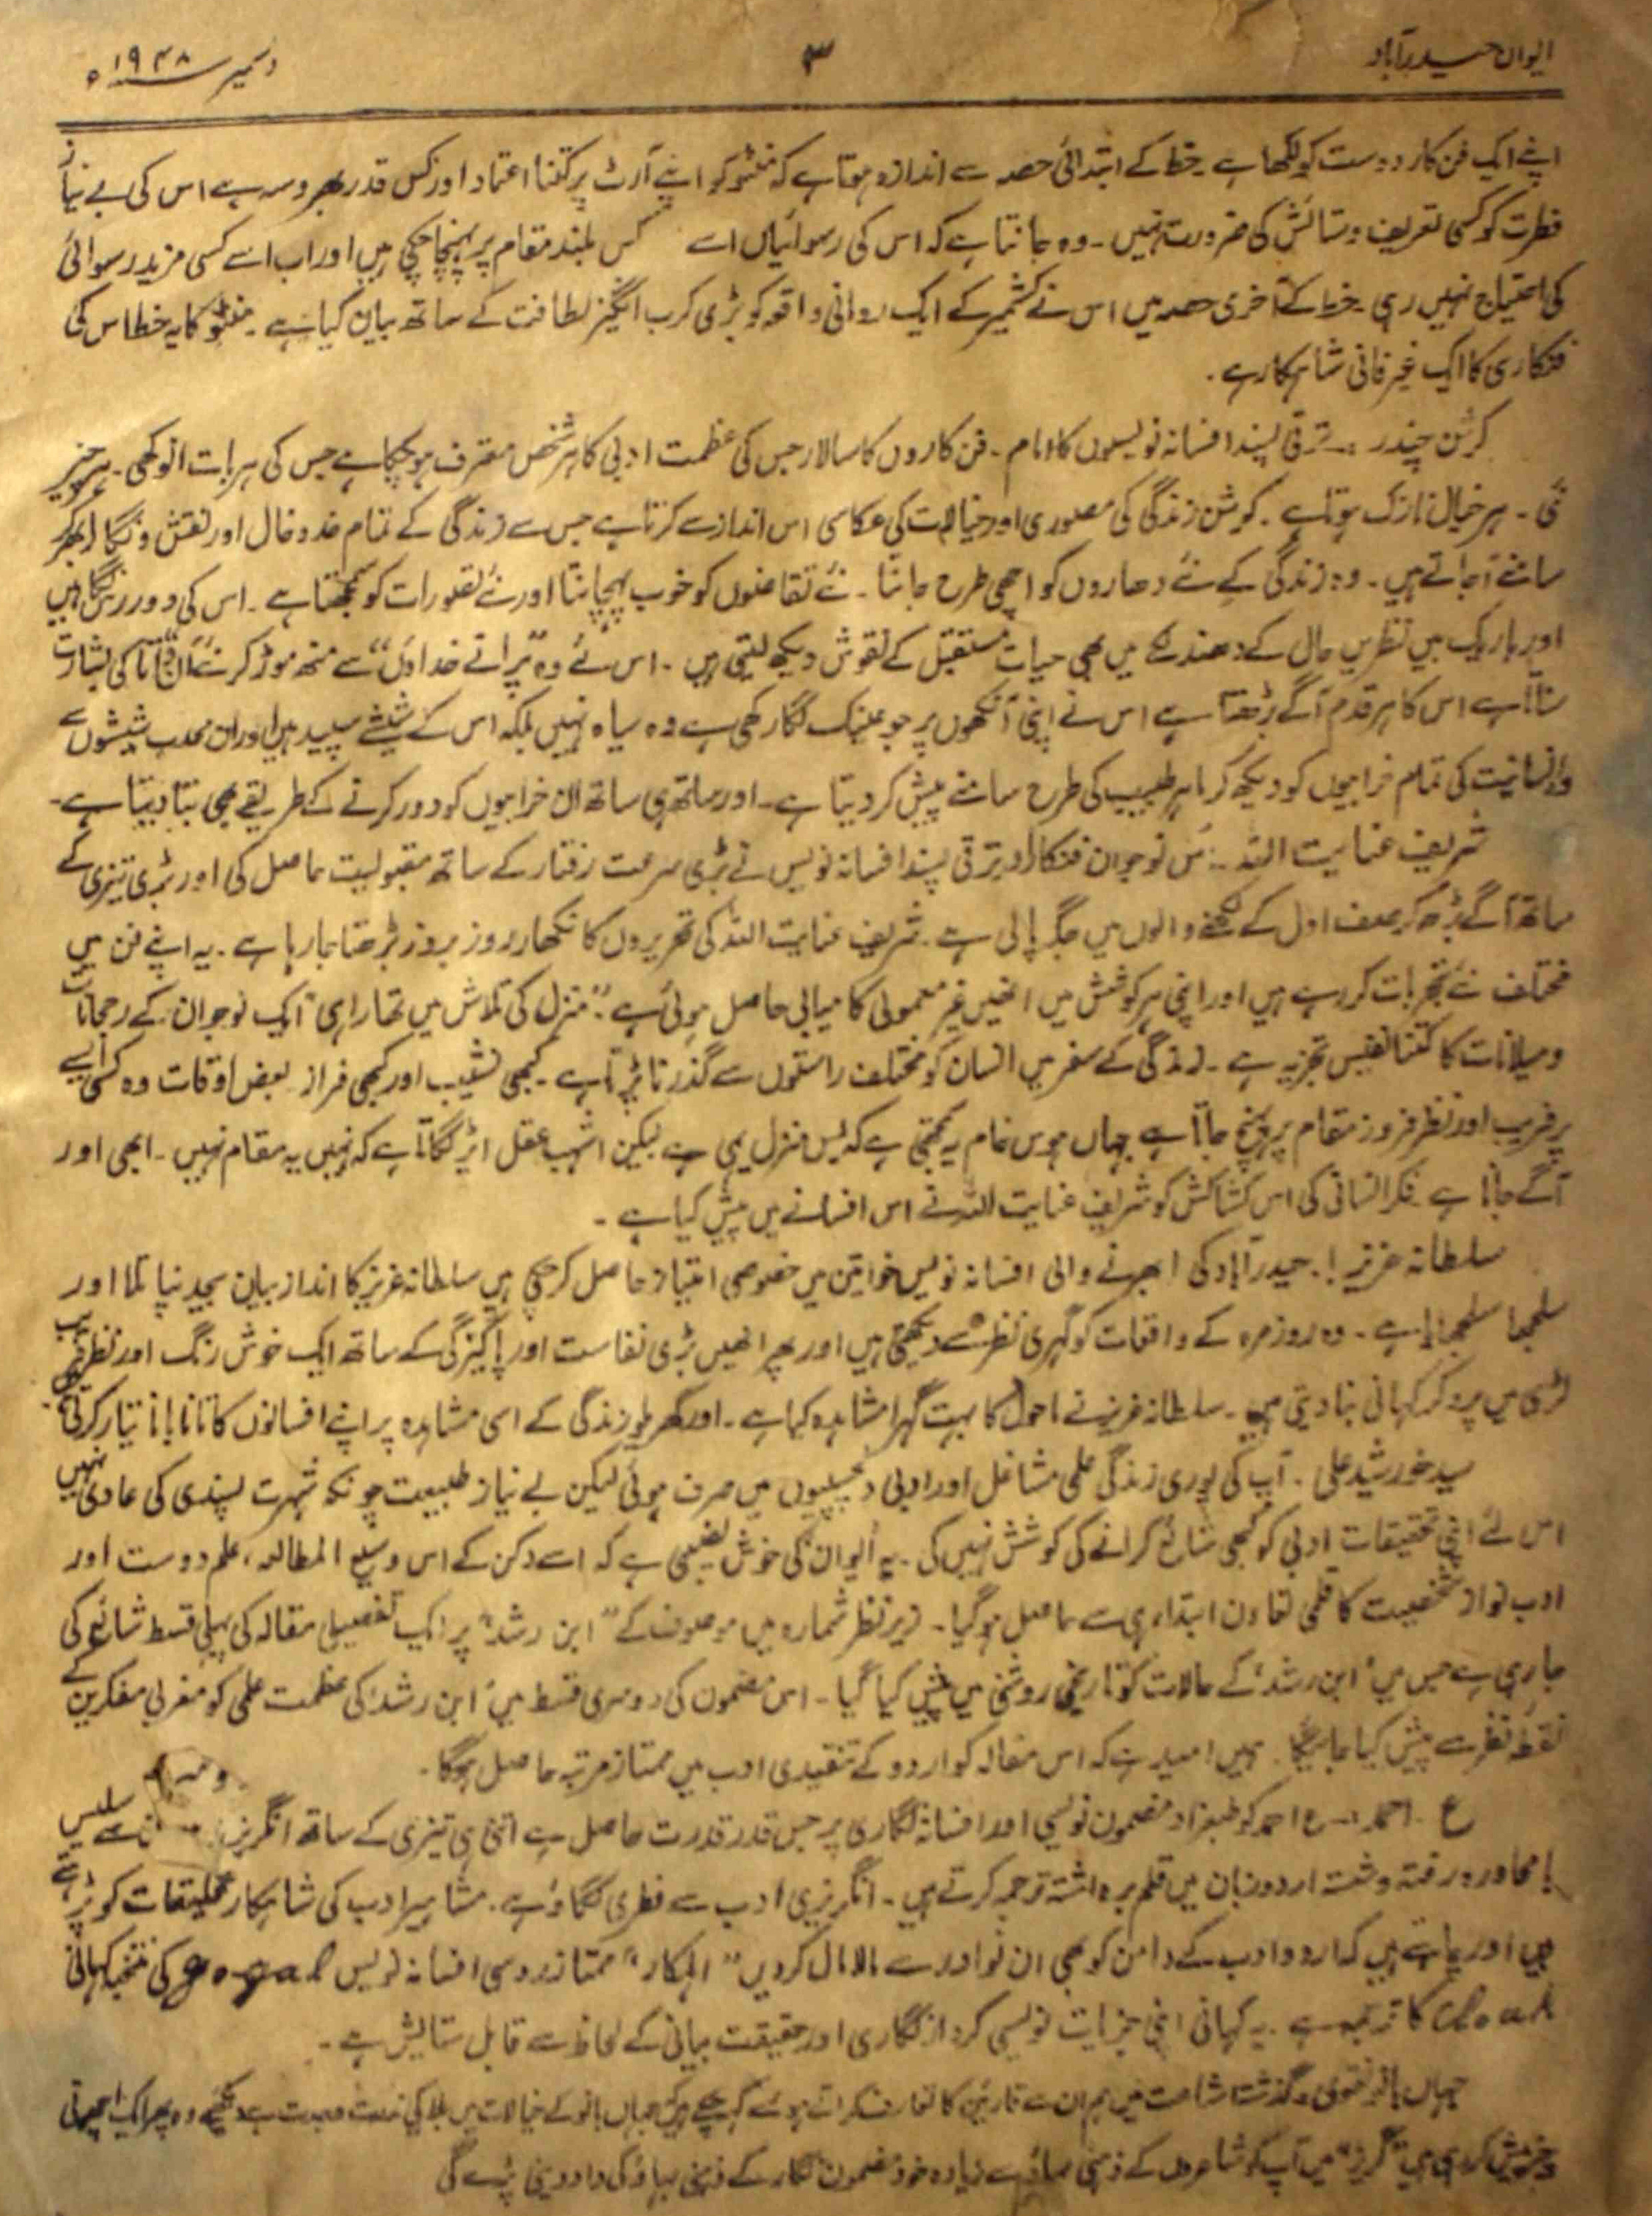 ایوان حیدرآباد
۳
دسمبر ۱۹۴۸ء
اپنے ایک فن کار دوست کو لکھا ہے۔ خط کے ابتدائی حصہ سے اندازہ ہوتا ہے کہ منٹو کو اپنے آرٹ پر کتنا اعتماد اور کس قدر بھروسہ ہے اس کی بے نیاز
فطرت کو کسی تعریف و ستائش کی ضرورت نہیں۔ وہ جانتا ہے کہ اس کی رسوائیاں اسے کس بلند مقام پر پہنچا چکی ہیں اور اب اسے کسی مزید رسوائی
کی احتیاج نہیں رہی۔ خط کے آخری حصہ میں اس نے کشمیر کے ایک رومانی واقعہ کو بڑی کرب انگیز لطافت کے ساتھ بیان کیا ہے۔ منٹو کا یہ خط اس کی
فنکاری کا ایک غیر فانی شاہکار ہے۔
کرشن چندر :۔ ترقی پسند افسانہ نویسوں کا امام۔ فن کاروں کا سالار جس کی عظمت ادبی کا ہر شخص معترف ہو چکا ہے جس کی ہر بات انوکھی۔ ہر چیز
نئی۔ ہر خیال نازک ہوتا ہے۔ کرشن زندگی کی مصوری اور خیالات کی عکاسی اس انداز سے کرتا ہے جس سے زندگی کے تمام خدوخال اور نقش و نگار ابھر کر
سامنے آجاتے ہیں۔ وہ زندگی کے نئے دھاروں کو اچھی طرح جانتا۔ نئے تقاضوں کو خوب پہچانتا اور نئے تصورات کو سمجھتا ہے۔ اس کی دور رس نگاہیں
اور باریک بین نظریں حال کے دھندلکے میں بھی حیات مستقبل کے نقوش دیکھ لیتی ہیں۔ اس لئے وہ "پرانے خداؤں" سے منھ موڑ کر نئے "ان داتا" کی بشارت
سناتا ہے اس کا ہر قدم آگے بڑھتا ہے اس نے اپنی آنکھوں پر جو عینک لگا رکھی ہے وہ سیاہ نہیں بلکہ اس کے شیشے سپید ہیں اور ان محدب شیشوں سے
وہ انسانیت کی تمام خرابیوں کو دیکھ کر ماہر طبیب کی طرح سامنے پیش کر دیتا ہے۔ اور ساتھ ہی ساتھ ان خرابیوں کو دور کرنے کے طریقے بھی بتا دیتا ہے۔
شریف عنایت اللہ :۔ اس نوجوان فنکار اور ترقی پسند افسانہ نویس نے بڑی سرعت رفتار کے ساتھ مقبولیت حاصل کی اور بڑی تیزی کے
ساتھ آگے بڑھ کر صف اول کے لکھنے والوں میں جگہ پالی ہے۔ شریف عنایت اللہ کی تحریروں کا نکھار روز بروز بڑھتا جا رہا ہے۔ یہ اپنے فن میں
مختلف نئے تجربات کر رہے ہیں اور اپنی ہر کوشش میں انھیں غیر معمولی کامیابی حاصل ہوئی ہے "منزل کی تلاش میں تھا راہی" ایک نوجوان کے رجحانات
و میلانات کا کتنا نفیس تجزیہ ہے۔ زندگی کے سفر میں انسان کو مختلف راستوں سے گذرنا پڑتا ہے۔ کبھی نشیب اور کبھی فراز۔ بعض اوقات وہ کسی ایسے
پر فریب اور نظر فروز مقام پر پہنچ جاتا ہے جہاں ہوس خام یہ سمجھتی ہے کہ بس منزل یہی ہے لیکن اشہب عقل ایڑ لگاتا ہے کہ نہیں یہ مقام نہیں۔ ابھی اور
آگے جانا ہے فکر انسانی کی اس کشاکش کو شریف عنایت اللہ نے اس افسانے میں پیش کیا ہے۔
سلطانہ عزیز :۔ حیدرآباد کی ابھرنے والی افسانہ نویس خواتین میں خصوصی امتیاز حاصل کر چکی ہیں سلطانہ عزیز کا انداز بیان بیحد نپا تلا اور
سلجھا سلجھایا ہے۔ وہ روز مرہ کے واقعات کو گہری نظر سے دیکھتی ہیں اور پھر انھیں بڑی نفاست اور پاکیزگی کے ساتھ ایک خوش رنگ اور نظر فریب
لڑی میں پرو کر کہانی بنا دیتی ہیں۔ سلطانہ عزیز نے ماحول کا بہت گہرا مشاہدہ کیا ہے۔ اور گھریلو زندگی کے اسی مشاہدہ پر اپنے افسانوں کا تانا بانا تیار کرتی ہیں
سید خورشید علی۔ آپ کی پوری زندگی علمی مشاغل اور ادبی دلچسپیوں میں صرف ہوئی لیکن بے نیاز طبیعت چونکہ شہرت پسندی کی عادی نہیں
اس لئے اپنی تحقیقات ادبی کو کبھی شائع کرانے کی کوشش نہیں کی۔ یہ ایوان کی خوش نصیبی ہے کہ اسے دکن کے اس وسیع المطالعہ، علم دوست اور
ادب نواز شخصیت کا قلمی تعاون ابتداء ہی سے حاصل ہو گیا۔ زیر نظر شمارہ میں موصوف کے "ابن رشد" پر ایک تفصیلی مقالہ کی پہلی قسط شائع کی
جا رہی ہے جس میں "ابن رشد" کے حالات کو تاریخی روشنی میں پیش کیا گیا۔ اس مضمون کی دوسری قسط میں "ابن رشد" کی عظمت علمی کو مغربی مفکرین کے
نقطۂ نظر سے پیش کیا جائیگا۔ ہمیں امید ہے کہ اس مقالہ کو اردو کے تنقیدی ادب میں ممتاز مرتبہ حاصل ہوگا۔
ع۔ احمد :۔ ع احمد کو طبعزاد مضمون نویسی اور افسانہ نگاری پر جس قدر قدرت حاصل ہے اتنی ہی تیزی کے ساتھ انگریزی سے سلیس
بامحاورہ رفتہ و شستہ اردو زبان میں قلم برداشتہ ترجمہ کرتے ہیں۔ انگریزی ادب سے فطری لگاؤ ہے۔ مشاہیر ادب کی شاہکار تخلیقات کو پڑھتے
ہیں اور چاہتے ہیں کہ اردو ادب کے دامن کو بھی ان نوادر سے مالا مال کر دیں "اہلکار" ممتاز روسی افسانہ نویس gogal کی منتخب کہانی
Cloak کا ترجمہ ہے۔ یہ کہانی اپنی جزیات نویسی کردار نگاری اور حقیقت بیانی کے لحاظ سے قابل ستایش ہے۔
جہاں بانو نقوی۔ گذشتہ اشاعت میں ہم ان سے قارئین کا تعارف کراتے ہوئے کہہ چکے ہیں جہاں بانو کے خیالات میں بلا کی ندرت و جدت ہے دیکھئے وہ پھر ایک اچھوتی
چیز پیش کر رہی ہیں "گریز" میں آپ کو شاعروں کے ذہنی بہاؤ سے زیادہ خود مضمون نگار کے ذہنی بہاؤ کی داد دینی پڑے گی